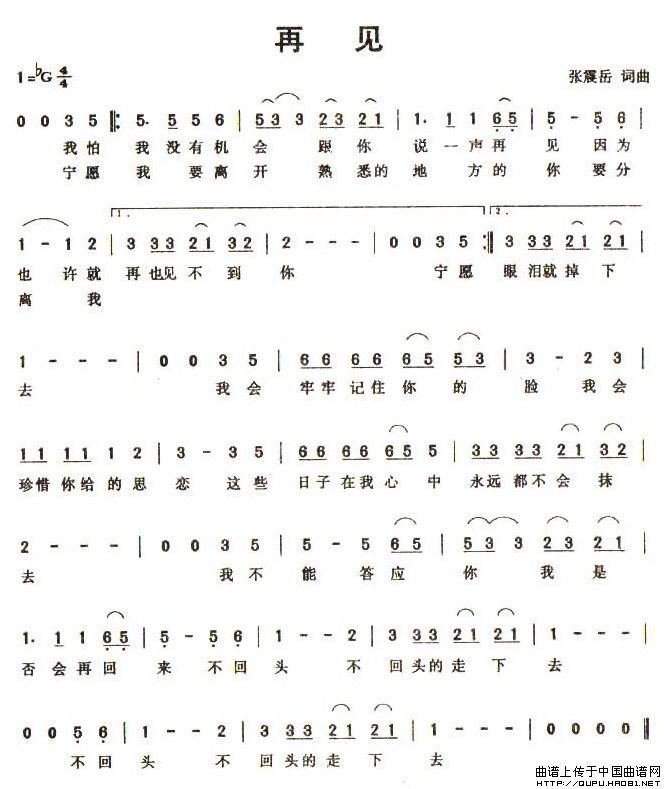 再 见
1=♭G 4/4
张震岳 词曲
0 0 3 5 |: 5. 5 5 6 | 5 3 3 2 3 2 1 | 1. 1 1 6 5 | 5 - 5 6 |
我怕 我 没有机 会 跟你 说 一声再 见 因为
宁愿 我 要离 开 熟悉的 地 方的 你 要分
1. 2.
1 - 1 2 | 3 3 3 2 1 3 2 | 2 - - - | 0 0 3 5 :| 3 3 3 2 1 2 1 |
也 许就 再也见不到 你 宁愿 眼泪就掉下
离 我
1 - - - | 0 0 3 5 | 6 6 6 6 6 5 5 3 | 3 - 2 3 |
去 我会 牢牢记住你 的 脸 我会
1 1 1 1 1 2 | 3 - 3 5 | 6 6 6 6 6 5 5 | 3 3 3 3 2 1 3 2 |
珍惜你给的思 恋 这些 日子在我心 中 永远都不会抹
2 - - - | 0 0 3 5 | 5 - 5 6 5 | 5 3 3 2 3 2 1 |
去 我不 能 答应 你 我是
1. 1 1 6 5 | 5 - 5 6 | 1 - - 2 | 3 3 3 2 1 2 1 | 1 - - - |
否会再回 来 不回 头 不 回头的走下 去
0 0 5 6 | 1 - - 2 | 3 3 3 2 1 2 1 | 1 - - - | 0 0 0 0 ‖
不回 头 不 回头的走 下 去
曲谱上传于中国曲谱网
HTTP://QUPU.HAO81.NET